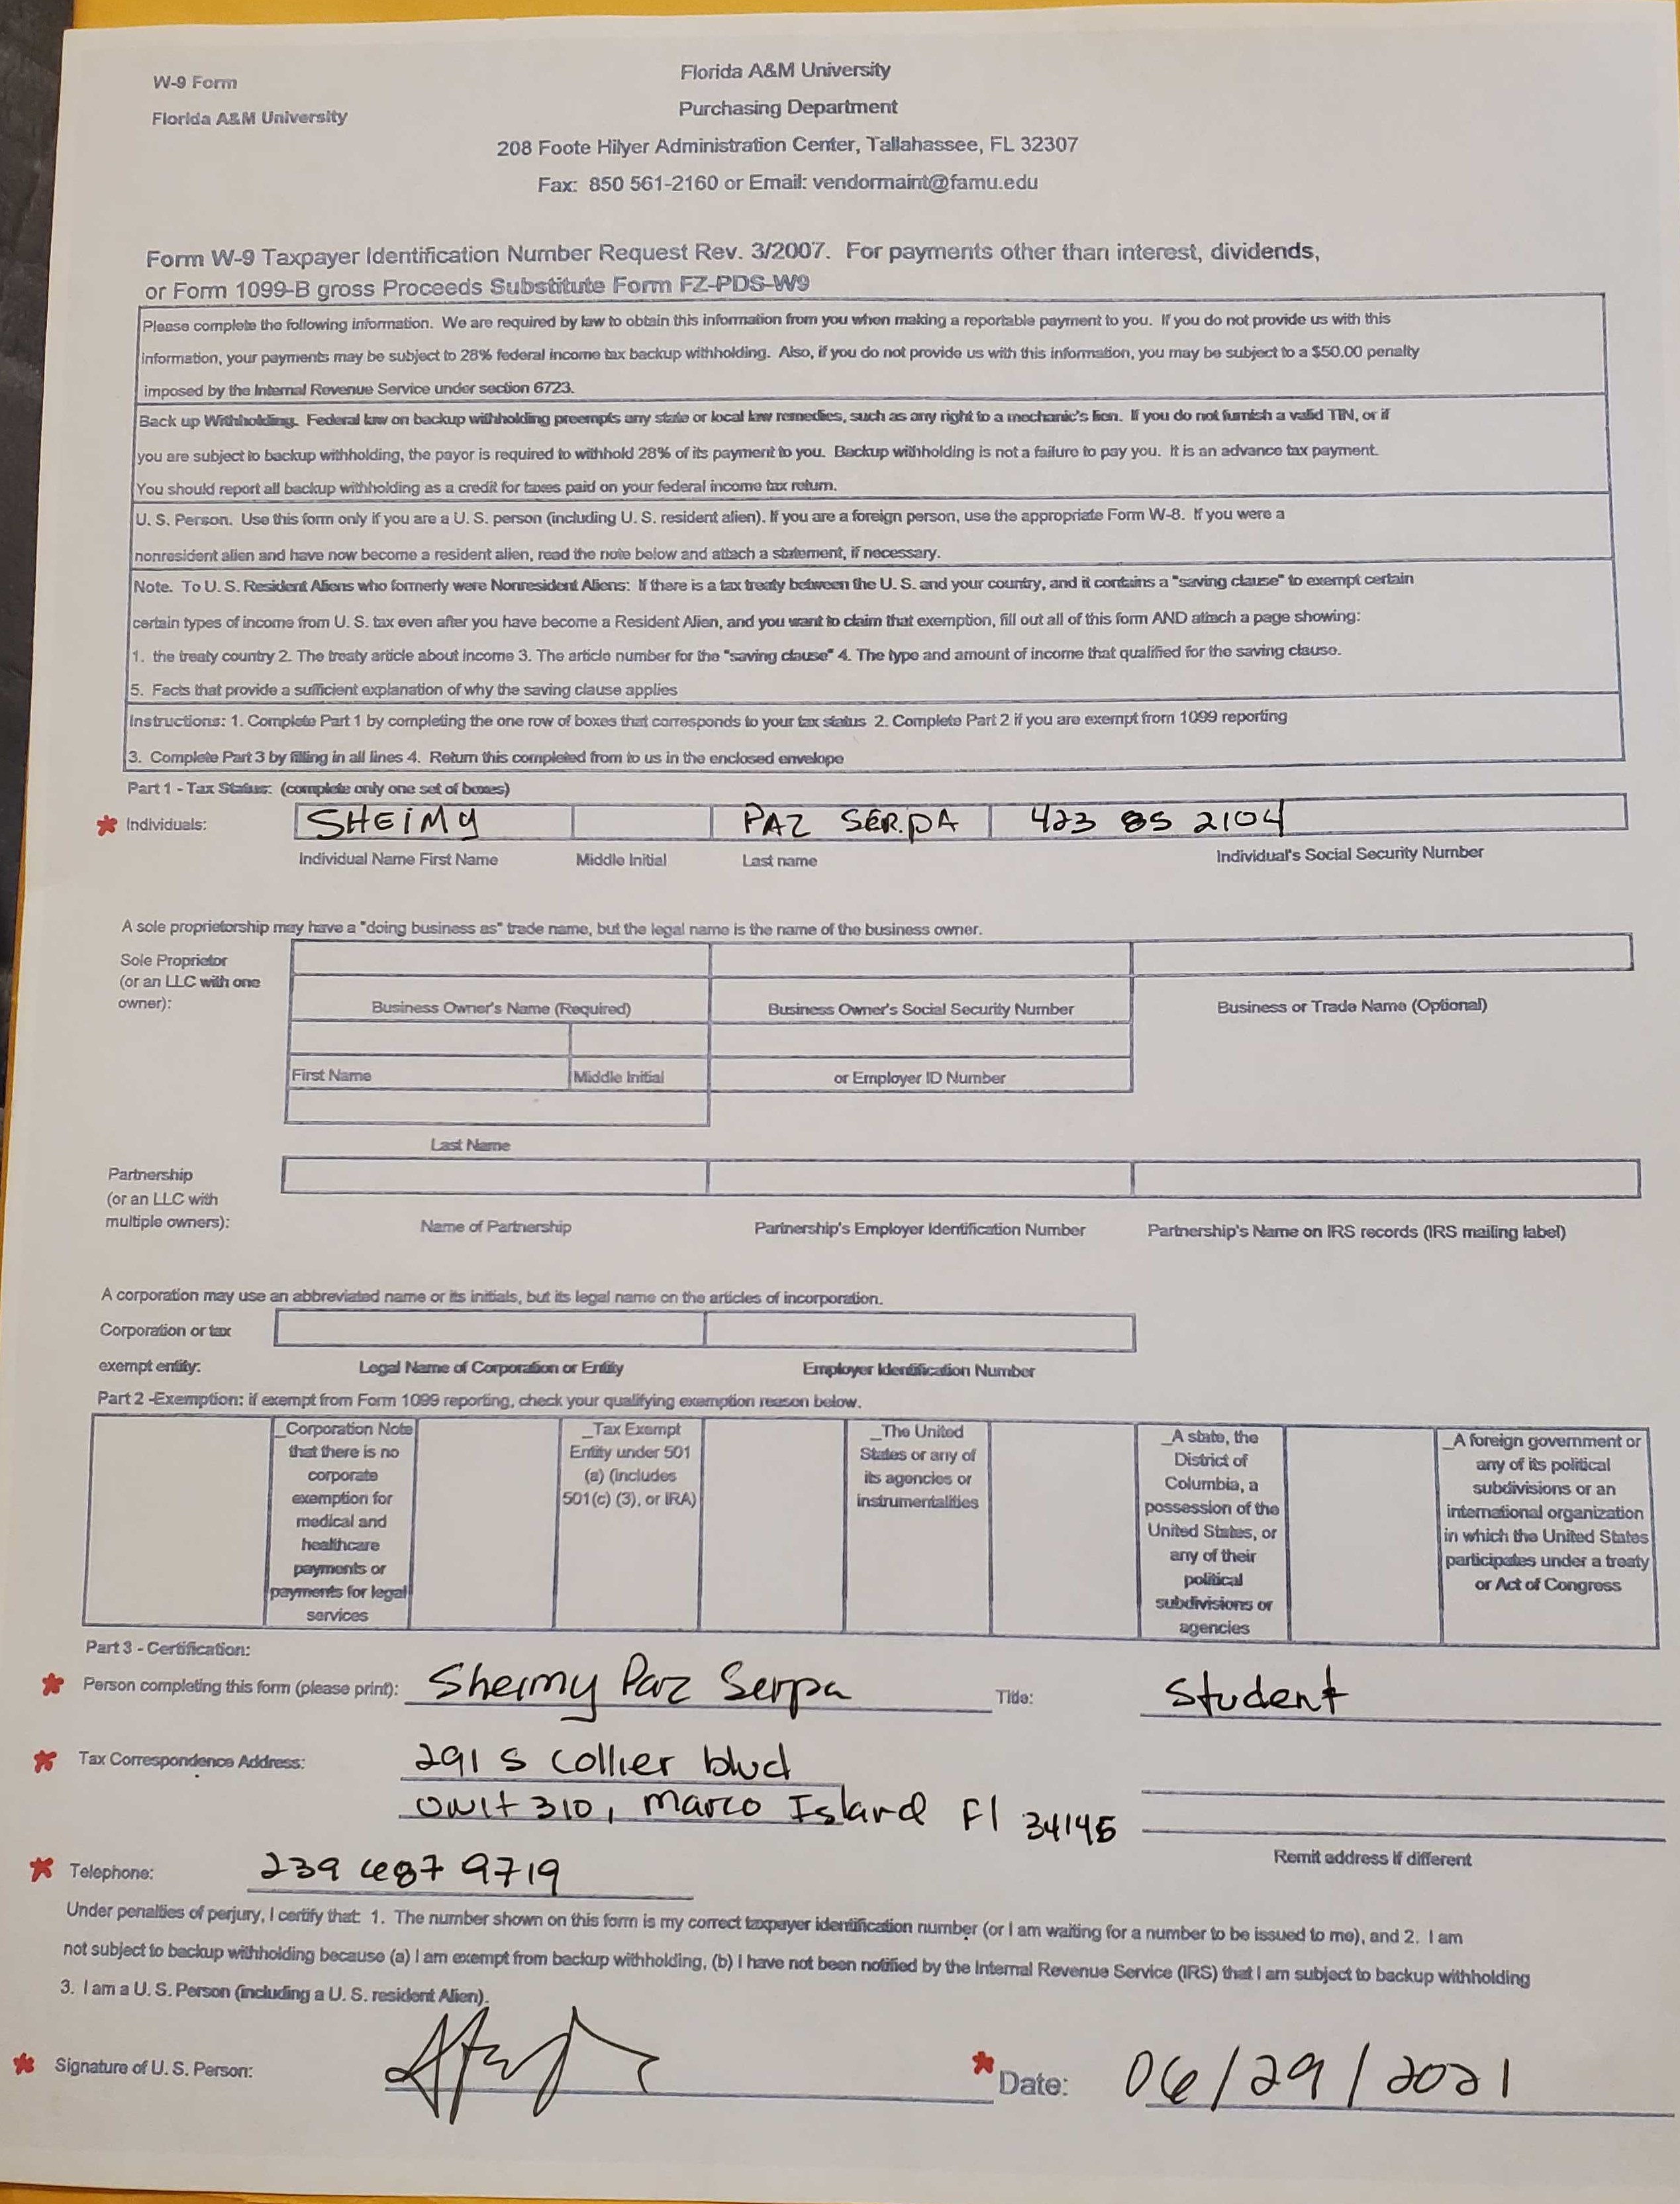 W-9 Form
Florida A&M University
Florida A&M University
Purchasing Department
208 Foote Hilyer Administration Center, Tallahassee, FL 32307
Fax: 850 561-2160 or Email: vendormaint@famu.edu
Form W-9 Taxpayer Identification Number Request Rev. 3/2007. For payments other than interest, dividends,
or Form 1099-B gross Proceeds Substitute Form FZ-PDS-W9
Please complete the following information. We are required by law to obtain this information from you when making a reportable payment to you. If you do not provide us with this
information, your payments may be subject to 28% federal income tax backup withholding. Also, if you do not provide us with this information, you may be subject to a $50.00 penalty
imposed by the Internal Revenue Service under section 6723.
Back up Withholding. Federal law on backup withholding preempts any state or local law remedies, such as any right to a mechanic's lien. If you do not furnish a valid TIN, or if
you are subject to backup withholding, the payor is required to withhold 28% of its payment to you. Backup withholding is not a failure to pay you. It is an advance tax payment.
You should report all backup withholding as a credit for taxes paid on your federal income tax return.
U. S. Person. Use this form only if you are a U. S. person (including U. S. resident alien). If you are a foreign person, use the appropriate Form W-8. If you were a
nonresident alien and have now become a resident alien, read the note below and attach a statement, if necessary.
Note. To U. S. Resident Aliens who formerly were Nonresident Aliens: If there is a tax treaty between the U. S. and your country, and it contains a "saving clause" to exempt certain
certain types of income from U. S. tax even after you have become a Resident Alien, and you want to claim that exemption, fill out all of this form AND attach a page showing:
1. the treaty country 2. The treaty article about income 3. The article number for the "saving clause" 4. The type and amount of income that qualified for the saving clause.
5. Facts that provide a sufficient explanation of why the saving clause applies
Instructions: 1. Complete Part 1 by completing the one row of boxes that corresponds to your tax status 2. Complete Part 2 if you are exempt from 1099 reporting
3. Complete Part 3 by filling in all lines 4. Return this completed from to us in the enclosed envelope
Part 1 - Tax Status: (complete only one set of boxes)
* Individuals: SHEIMY PAZ SERPA 423 85 2104
Individual Name First Name Middle Initial Last name Individual's Social Security Number
A sole proprietorship may have a "doing business as" trade name, but the legal name is the name of the business owner.
Sole Proprietor
(or an LLC with one
owner):
Business Owner's Name (Required) Business Owner's Social Security Number Business or Trade Name (Optional)
First Name Middle Initial or Employer ID Number
Last Name
Partnership
(or an LLC with
multiple owners):
Name of Partnership Partnership's Employer Identification Number Partnership's Name on IRS records (IRS mailing label)
A corporation may use an abbreviated name or its initials, but its legal name on the articles of incorporation.
Corporation or tax
exempt entity: Legal Name of Corporation or Entity Employer Identification Number
Part 2 -Exemption: if exempt from Form 1099 reporting, check your qualifying exemption reason below.
_Corporation Note
that there is no
corporate
exemption for
medical and
healthcare
payments or
payments for legal
services
_Tax Exempt
Entity under 501
(a) (includes
501(c) (3), or IRA)
_The United
States or any of
its agencies or
instrumentalities
_A state, the
District of
Columbia, a
possession of the
United States, or
any of their
political
subdivisions or
agencies
_A foreign government or
any of its political
subdivisions or an
international organization
in which the United States
participates under a treaty
or Act of Congress
Part 3 - Certification:
* Person completing this form (please print): Sheimy Paz Serpa Title: Student
* Tax Correspondence Address: 291 S Collier blvd
Unit 310, Marco Island Fl 34145
Remit address if different
* Telephone: 239 687 9719
Under penalties of perjury, I certify that: 1. The number shown on this form is my correct taxpayer identification number (or I am waiting for a number to be issued to me), and 2. I am
not subject to backup withholding because (a) I am exempt from backup withholding, (b) I have not been notified by the Internal Revenue Service (IRS) that I am subject to backup withholding
3. I am a U. S. Person (including a U. S. resident Alien).
* Signature of U. S. Person: * Date: 06/29/2021